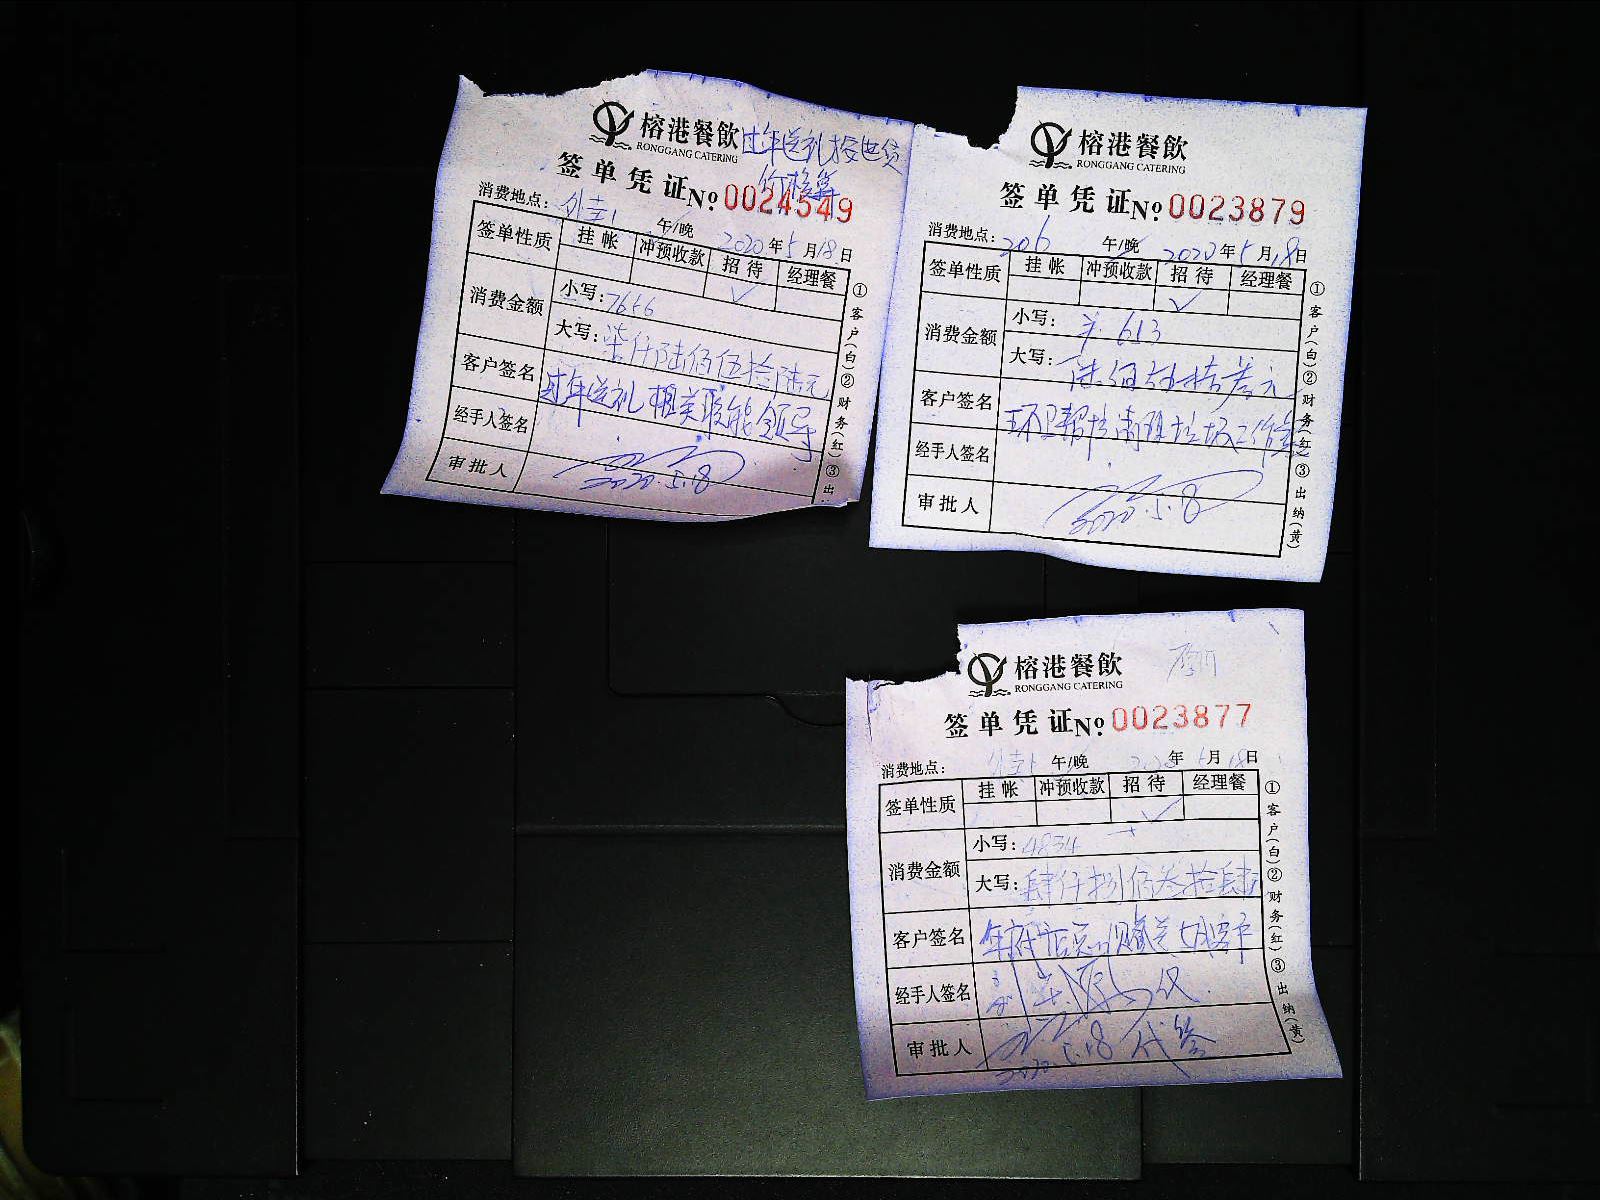 榕港餐飲
RONGGANG CATERING
过年送礼按进货
价格算
签单凭证 No 0024549
消费地点: 外卖1 午/晚 2020年5月18日
签单性质 挂帐 冲预收款 招待 经理餐
✓
消费金额 小写: 7656
大写: 柒仟陆佰伍拾陆元
客户签名 过年送礼相关职能领导
经手人签名
审批人 2020.5.18
①客户(白)②财务(红)③出
榕港餐飲
RONGGANG CATERING
签单凭证 No 0023879
消费地点: 206 午/晚 2020年5月18日
签单性质 挂帐 冲预收款 招待 经理餐
✓
消费金额 小写: 613
大写: 陆佰 拾叁元
客户签名 环卫帮忙清理垃圾工作
经手人签名
审批人 2020.5.18
①客户(白)②财务(红)③出纳(黄)
榕港餐飲
RONGGANG CATERING
签单凭证 No 0023877
消费地点: 外卖1 午/晚 2020年5月18日
签单性质 挂帐 冲预收款 招待 经理餐
✓
消费金额 小写: 4834
大写: 肆仟捌佰叁拾肆元
客户签名
经手人签名
审批人 2020.5.18 代签
①客户(白)②财务(红)③出纳(黄)